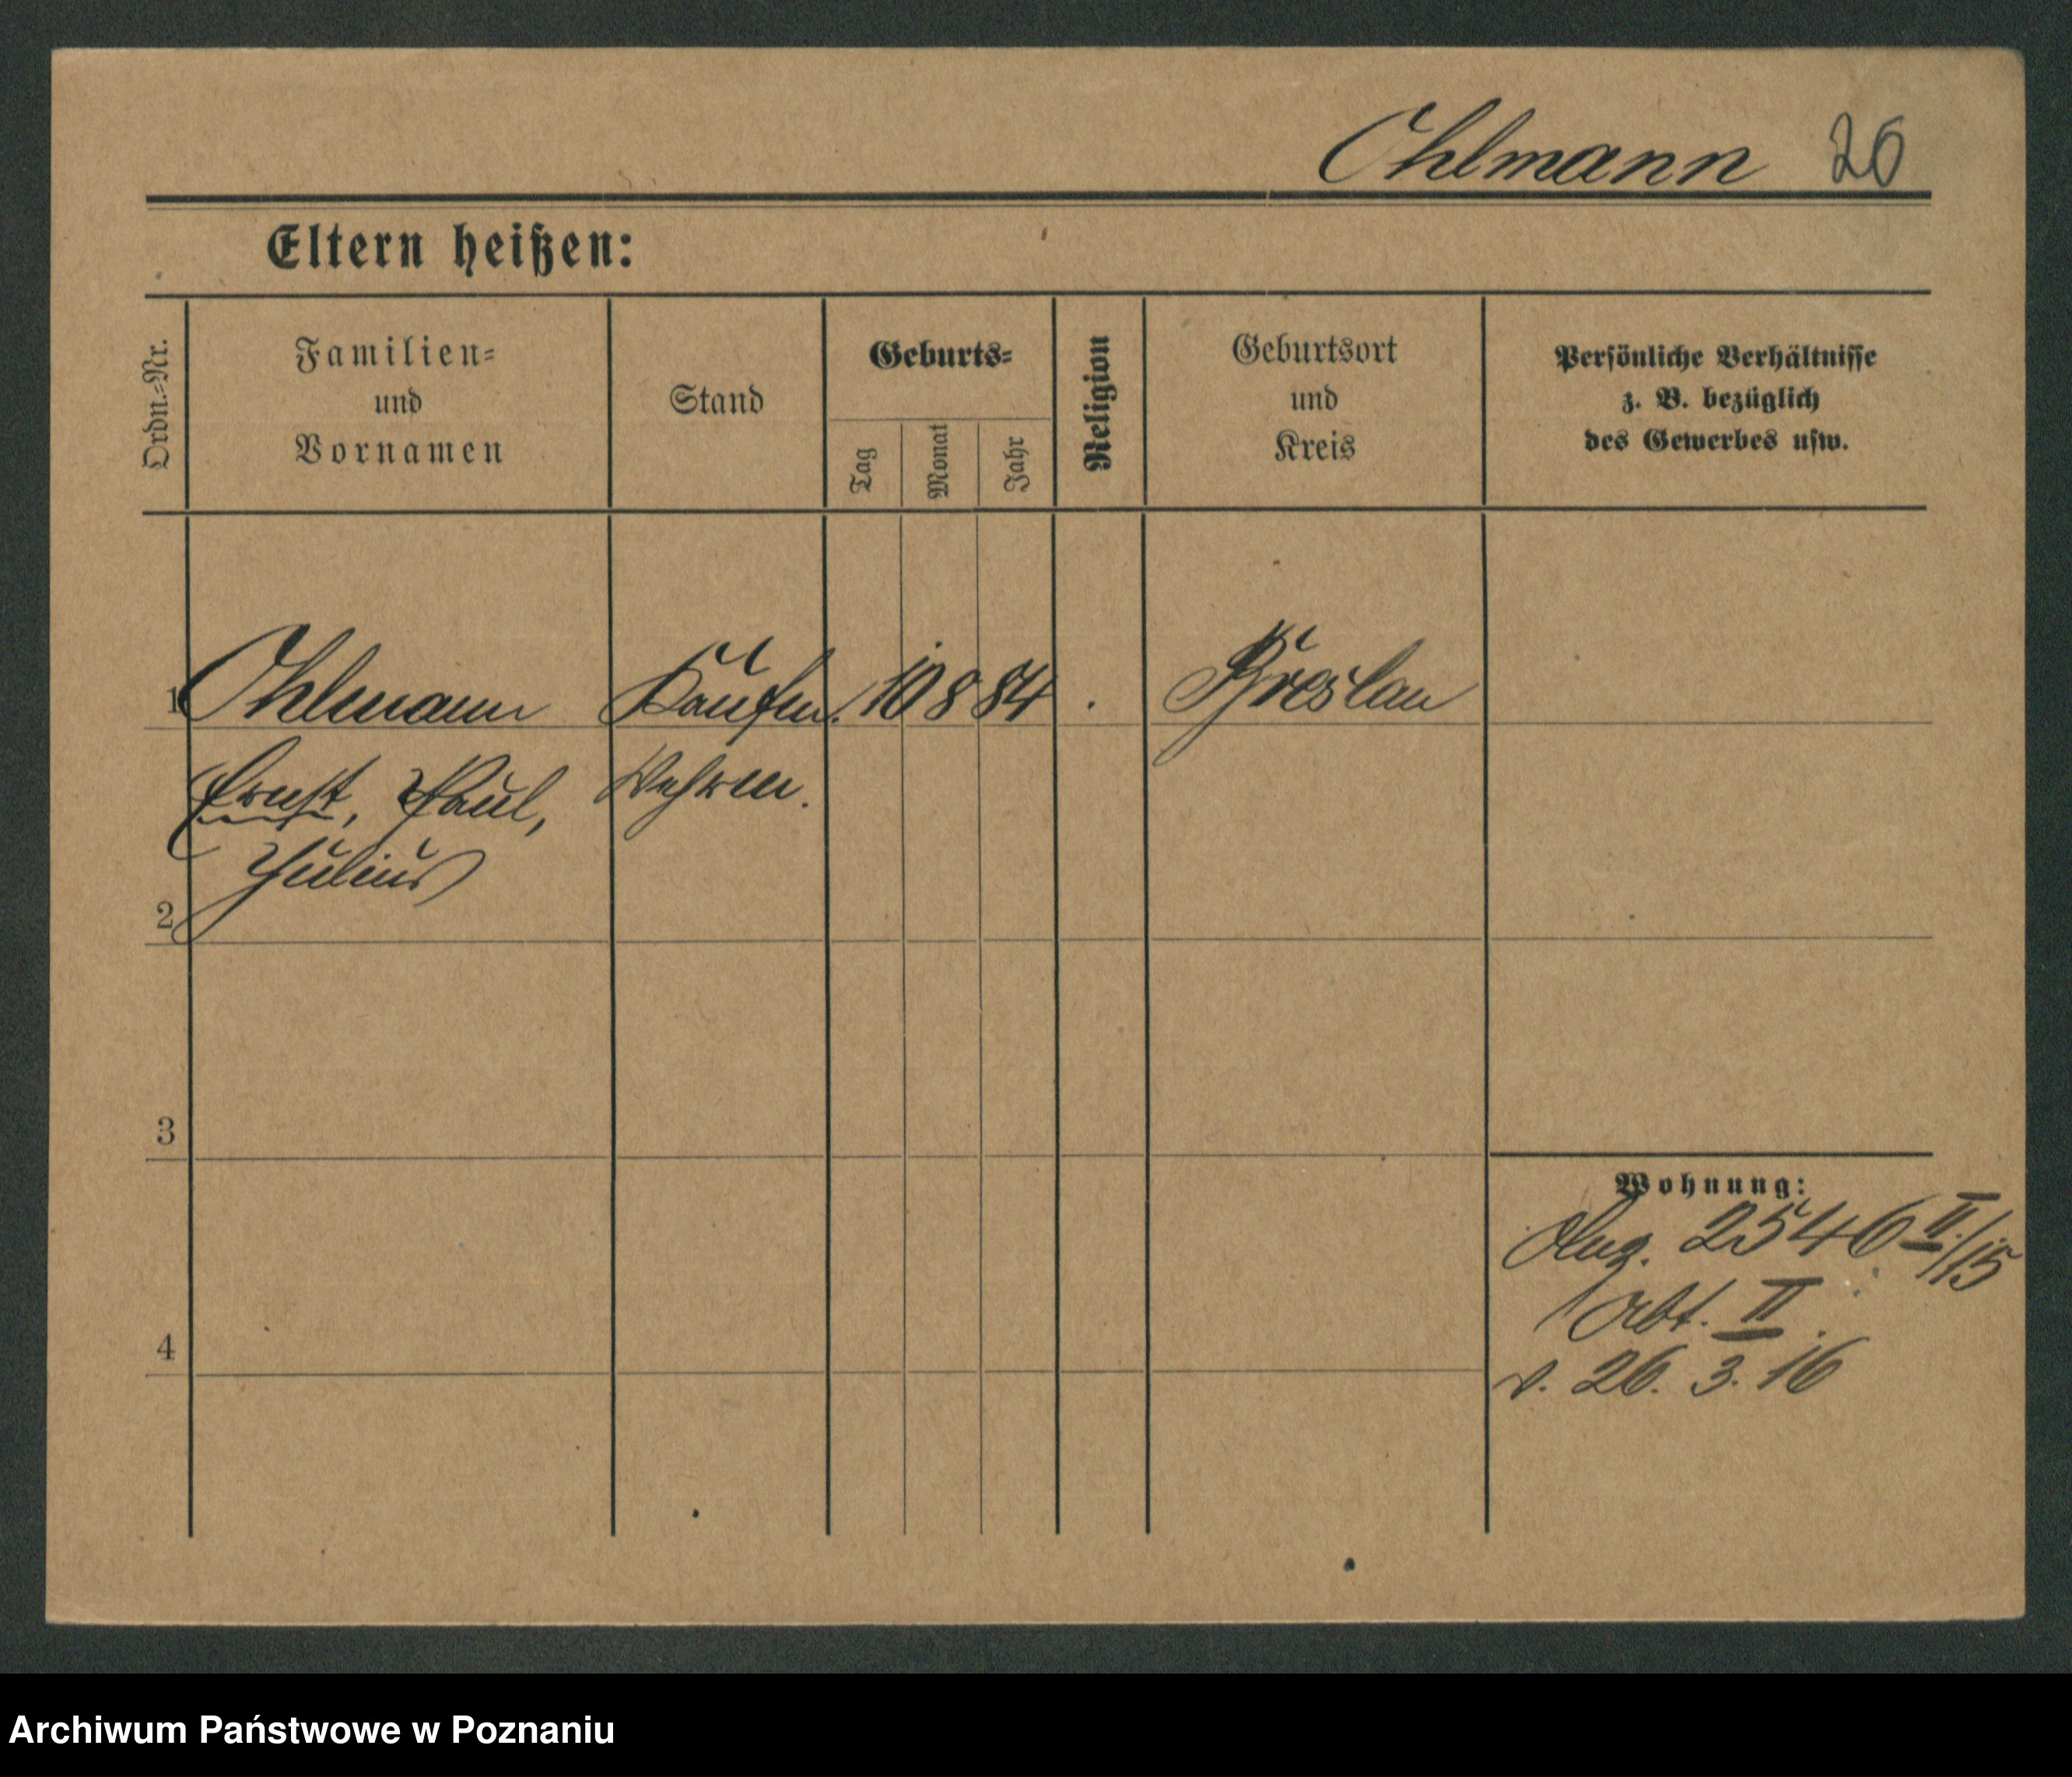 Ohlmann 26
Eltern heißen:
Ordn.-Nr.
Familien-
und
Vornamen
Stand
Geburts-
Tag
Monat
Jahr
Religion
Geburtsort
und
Kreis
Persönliche Verhältnisse
z. B. bezüglich
des Gewerbes usw.
1 Ohlmann Kaufm. 10 8 84 . Breslau
Ernst, Paul, Wehrm.
Julius
2
3
Wohnung:
Ang. 2546 II./15
Abt. II.
4
v. 26. 3. 16
Archiwum Państwowe w Poznaniu